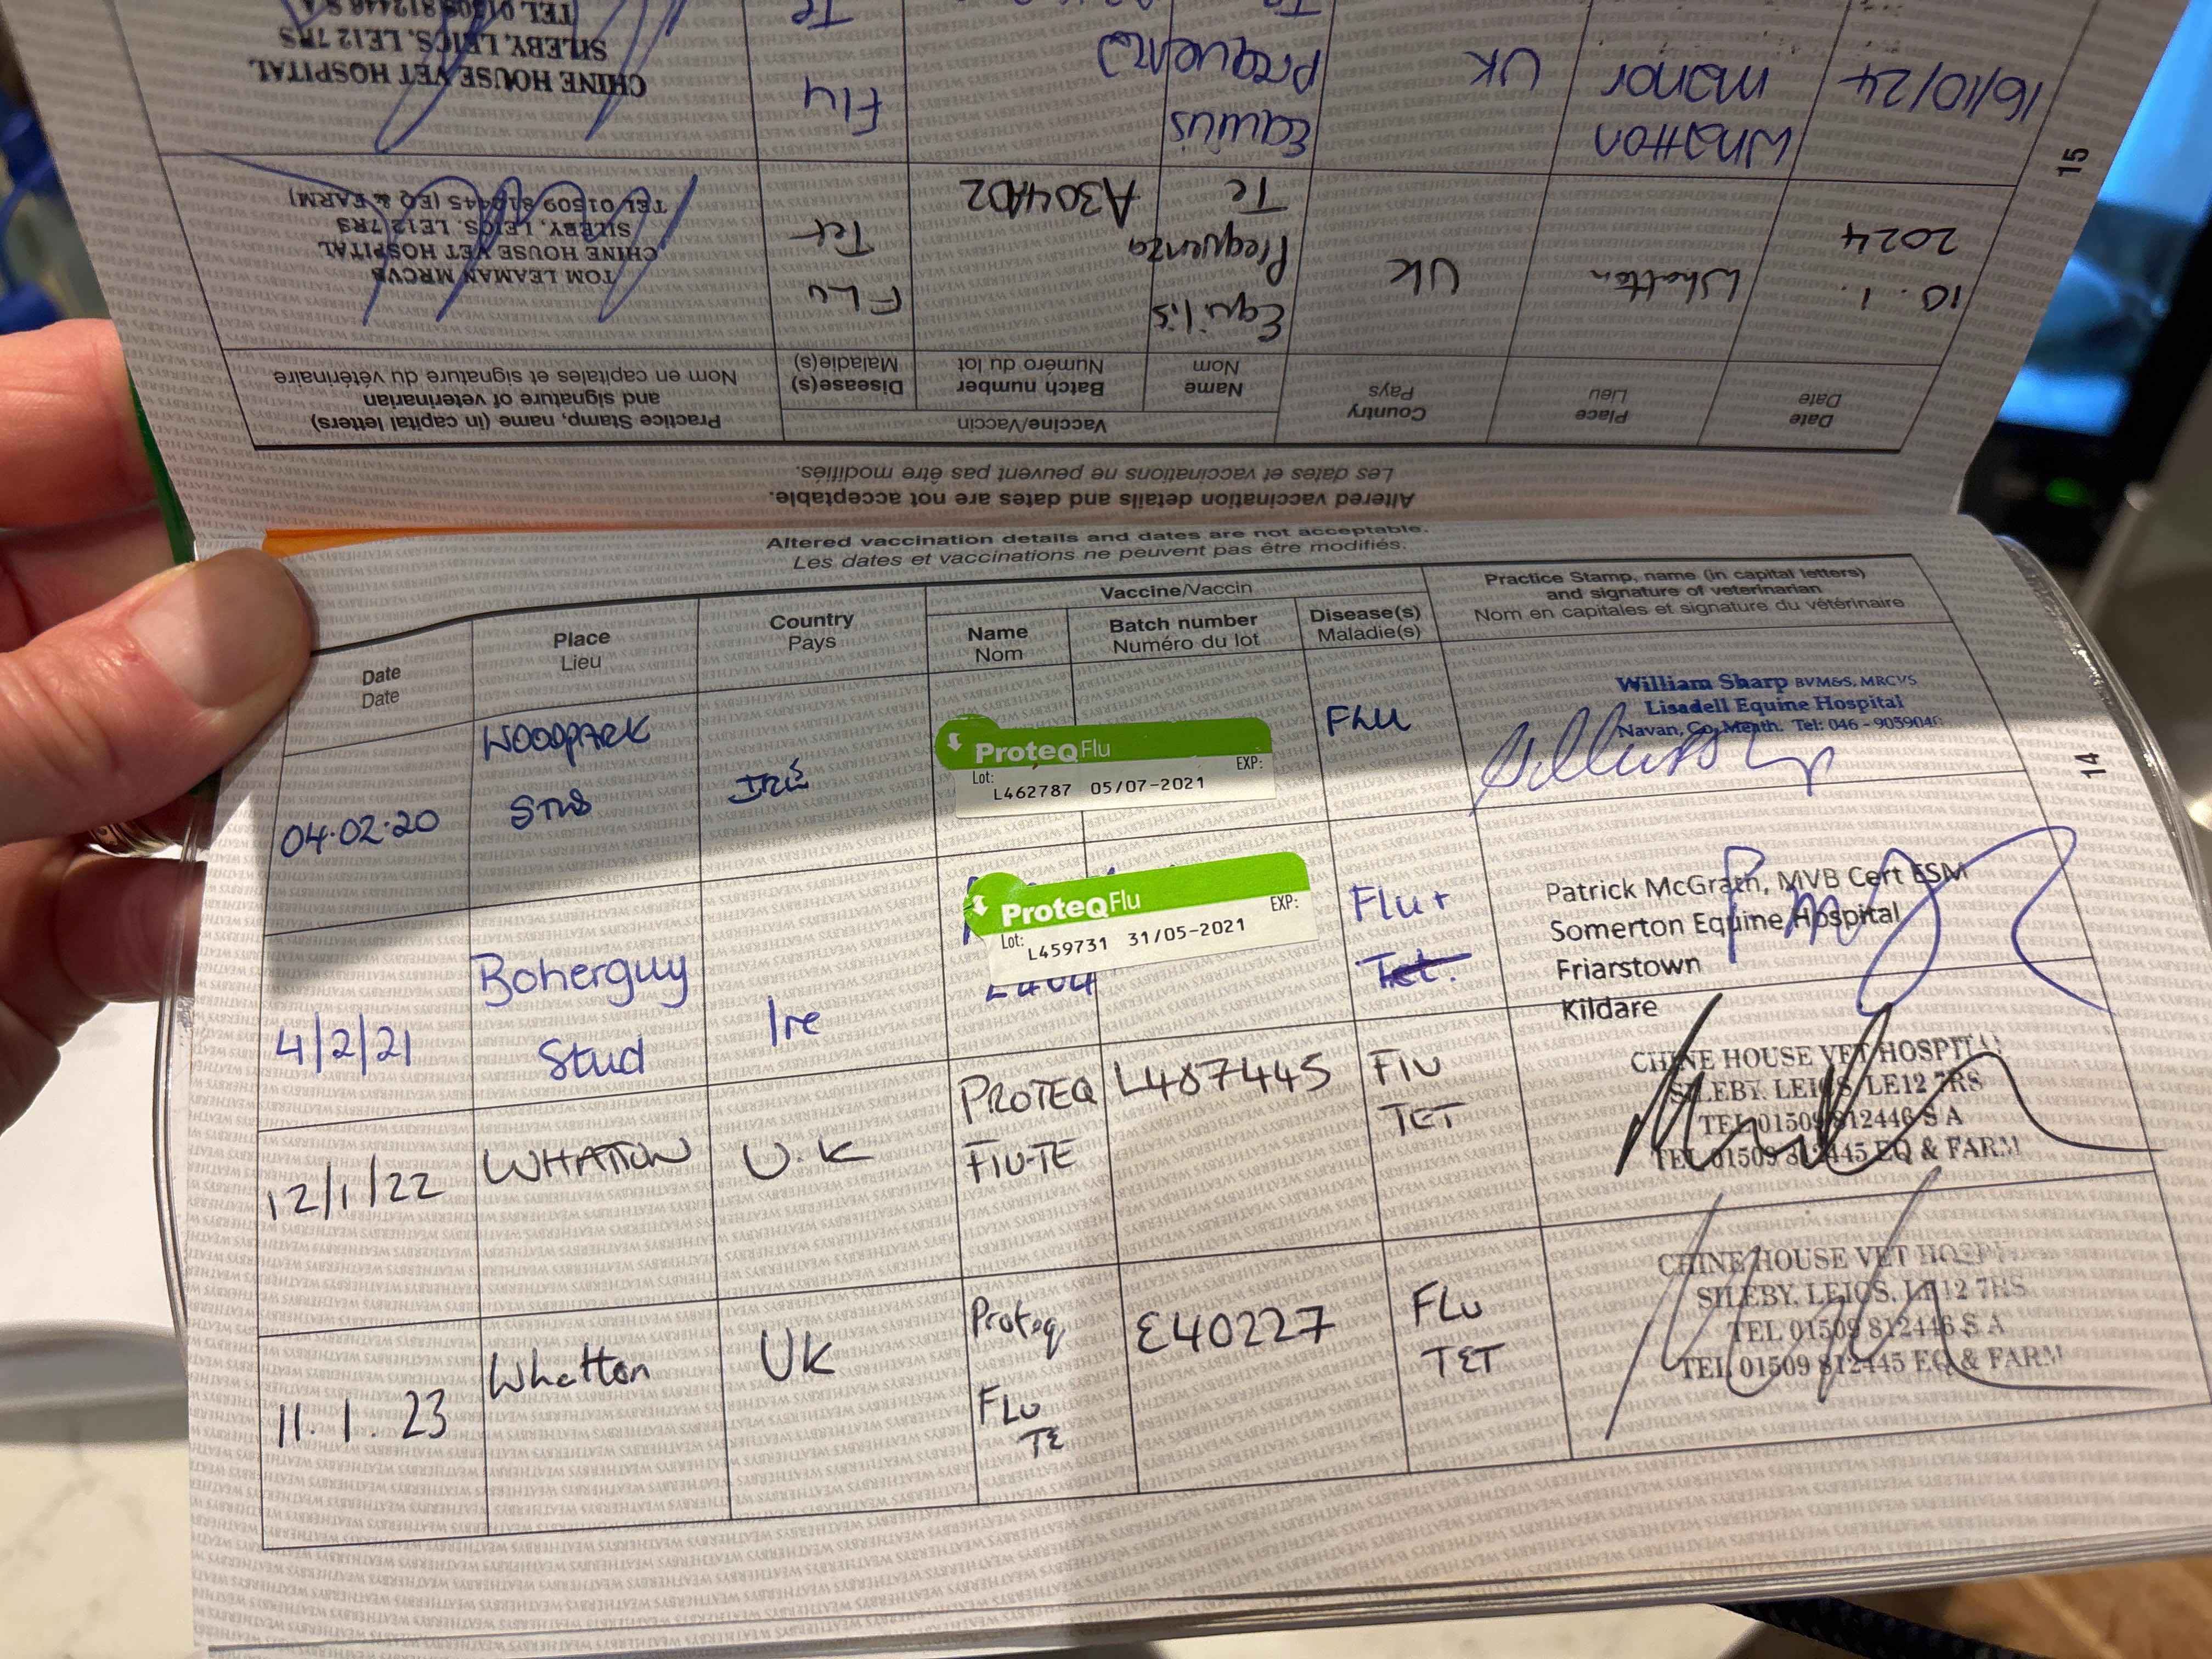 Altered vaccination details and dates are not acceptable.
Les dates et vaccinations ne peuvent pas être modifiés.
Date
Date
Place
Lieu
Country
Pays
Vaccine/Vaccin
Name
Nom
Batch number
Numéro du lot
Disease(s)
Maladie(s)
Practice Stamp, name (in capital letters)
and signature of veterinarian
Nom en capitales et signature du vétérinaire
04.02.20
WOODPARK
STUD
IRE
ProteqFlu
Lot:
EXP:
L462787 05/07-2021
FLU
William Sharp BVM&S, MRCVS
Lisadell Equine Hospital
Navan, Co. Meath. Tel: 046 - 905904
4/2/21
Boherguy
Stud
Ire
ProteqFlu
Lot:
EXP:
L459731 31/05-2021
Flu +
Tet.
Patrick McGrath, MVB Cert ESM
Somerton Equine Hospital
Friarstown
Kildare
12/1/22
WHATTON
U.K
PROTEQ
FLU-TE
L487445
FLU
TET
CHINE HOUSE VET HOSPITAL
SILEBY, LEICS, LE12 7RS
TEL 01509 812446 S A
TEL 01509 812445 EQ & FARM
11.1.23
Whatton
UK
Proteq
FLU
TE
E40227
FLU
TET
CHINE HOUSE VET
SILEBY, LEICS, LE12 7RS
TEL 01509 812446 S A
TEL 01509 812445 EQ & FARM
14
Altered vaccination details and dates are not acceptable.
Les dates et vaccinations ne peuvent pas être modifiés.
Date
Date
Place
Lieu
Country
Pays
Vaccine/Vaccin
Name
Nom
Batch number
Numéro du lot
Disease(s)
Maladie(s)
Practice Stamp, name (in capital letters)
and signature of veterinarian
Nom en capitales et signature du vétérinaire
10.1.
2024
Whatton
UK
Equilis
Prequenza
Te
A304A02
FLU
Tet
TOM LEAMAN MRCVS
CHINE HOUSE VET HOSPITAL
SILEBY, LEICS, LE12 7RS
TEL 01509 812445 (EQ & FARM)
16/10/24
Whatton
manor
UK
Equilis
prequenza
Te
Flu
Te
CHINE HOUSE VET HOSPITAL
SILEBY, LEICS, LE12 7RS
TEL 01509 812446 S A
15